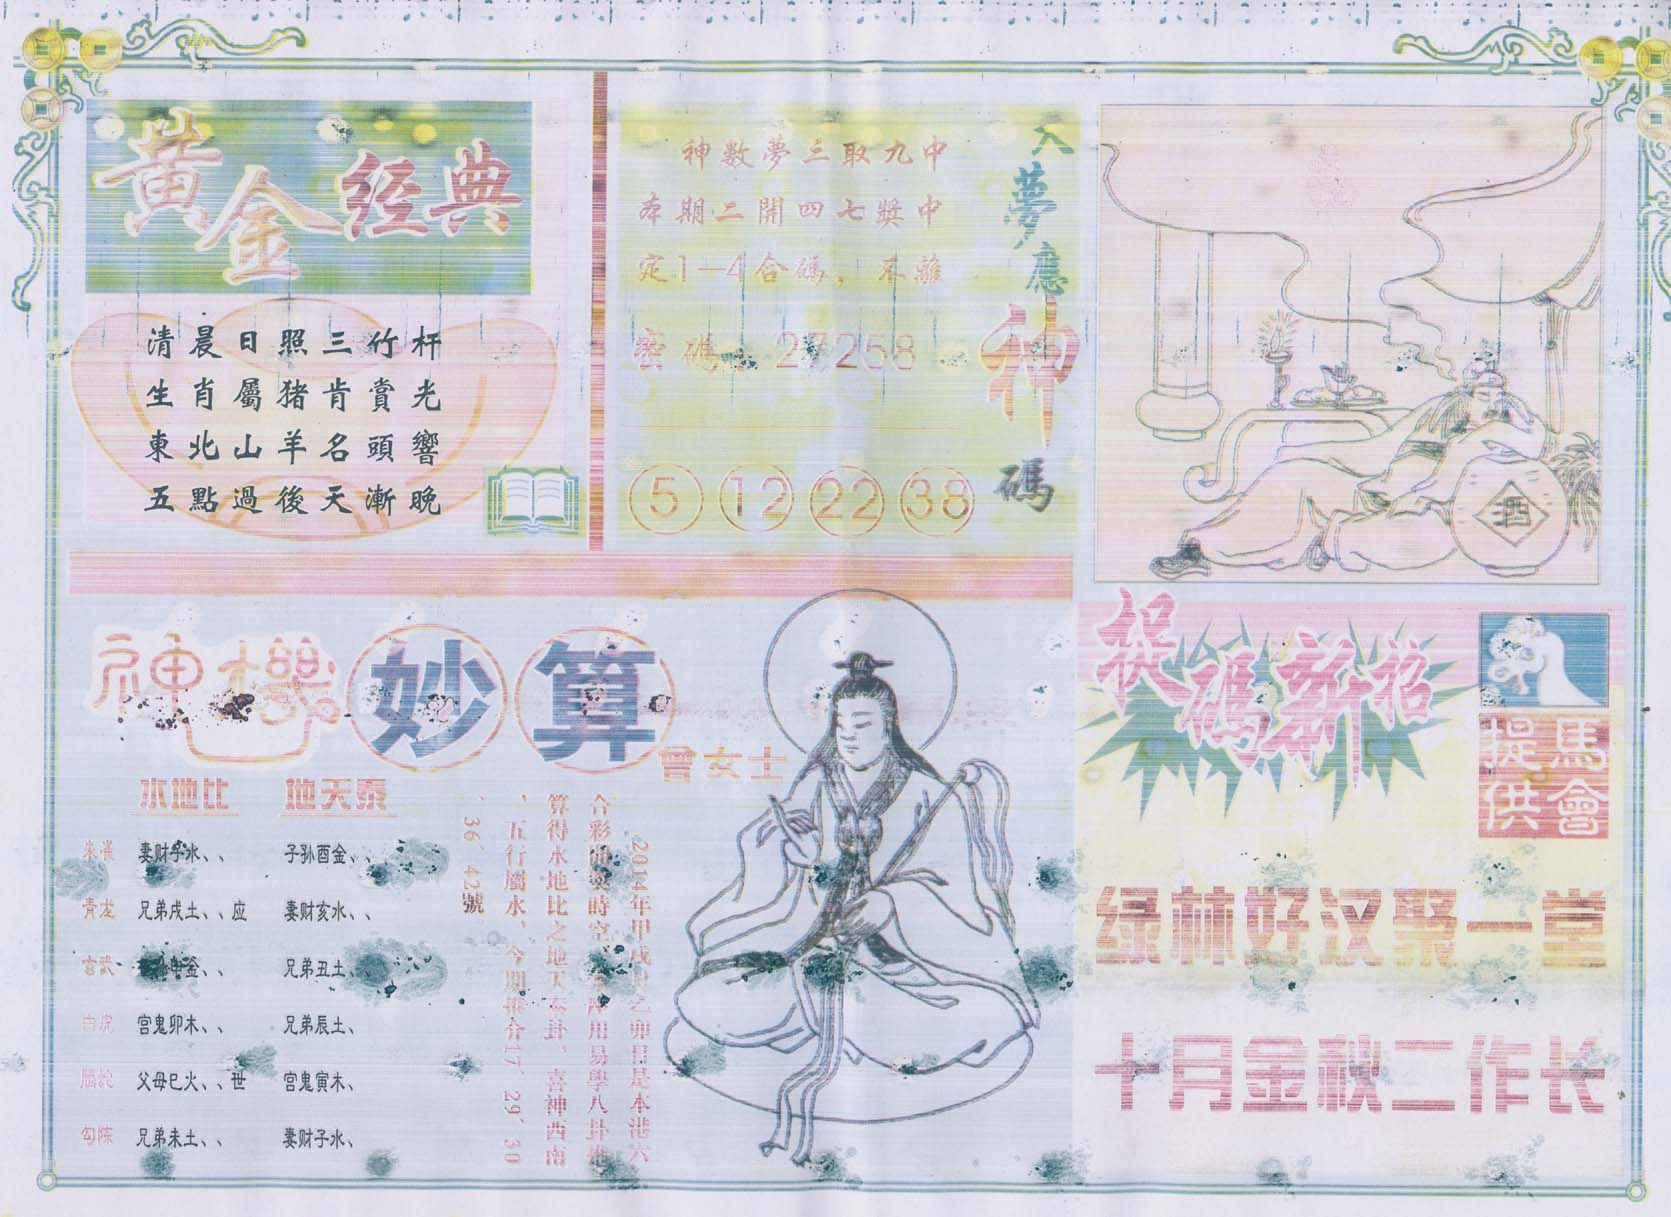 黄金经典
清晨日照三竹杆
生肖屬猪肯賞光
東北山羊名頭響
五點過後天漸晚
入夢應神碼
神數夢三取九中
本期二開四七獎中
定1—4合碼，不離
密碼：27258
5 12 22 38
酒
神機妙算
曾女士
水地比 地天泰
朱雀 妻财子水、、 子孙酉金、、
青龙 兄弟戌土、、应 妻财亥水、、
玄武 申金、、 兄弟丑土、、
白虎 官鬼卯木、、 兄弟辰土、
螣蛇 父母巳火、、世 官鬼寅木、
勾陈 兄弟未土、、 妻财子水、
2014年甲戌月乙卯日是本港六
合彩開獎時空，用易學八卦推
算得水地比之地天泰卦、喜神西南
、五行屬水、今期推介17、29、30
、36、42號
捉碼新招
馬會提供
绿林好汉聚一堂
十月金秋二作长